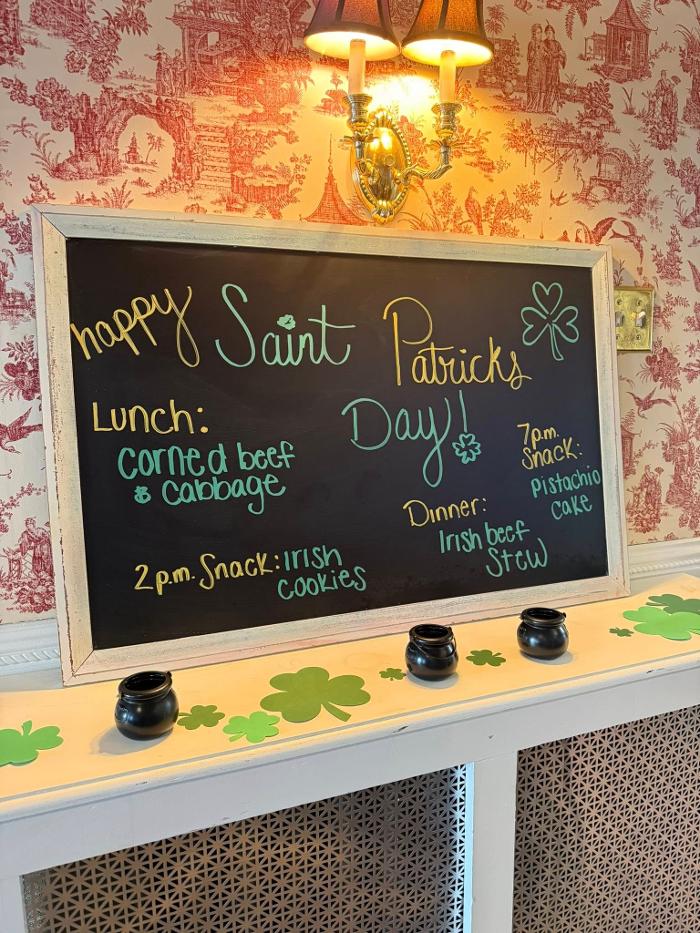 happy Saint Patricks
Day!
Lunch:
corned beef
& cabbage
2p.m. Snack: Irish
cookies
Dinner:
Irish beef
Stew
7p.m.
Snack:
Pistachio
cake